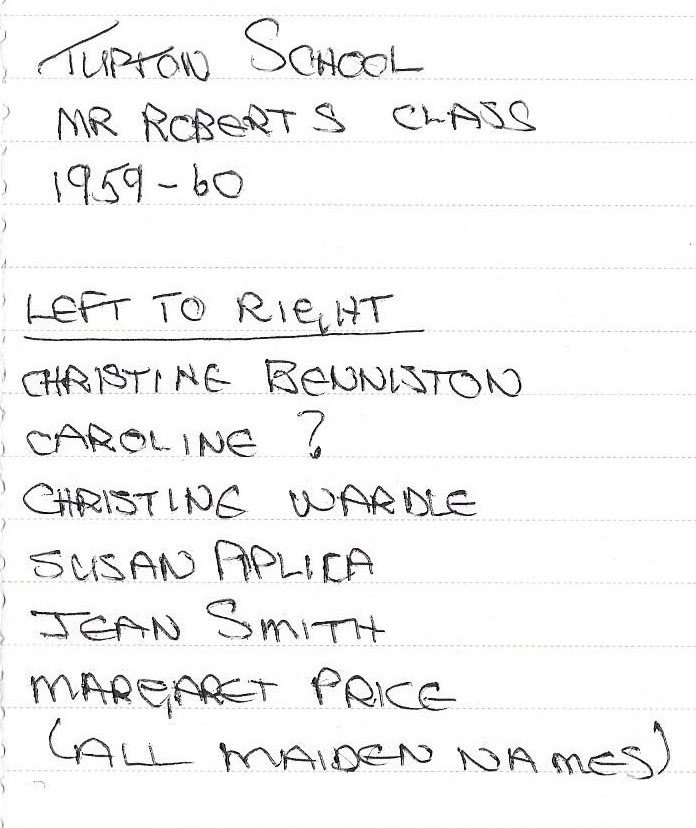 TUPTON SCHOOL
MR ROBERTS CLASS
1959-60
LEFT TO RIGHT
CHRISTINE BENNISTON
CAROLINE ?
CHRISTINE WARDLE
SUSAN APLICA
JEAN SMITH
MARGARET PRICE
(ALL MAIDEN NAMES)